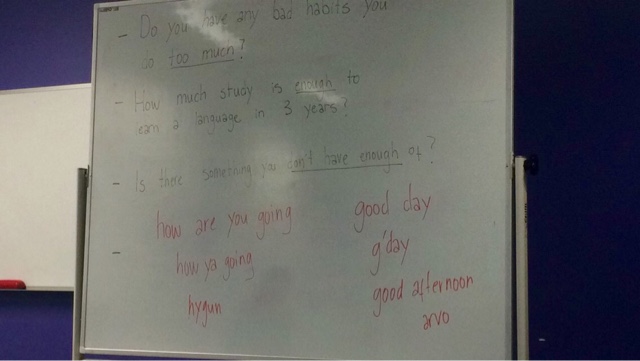 - Do you have any bad habits you
do too much?
- How much study is enough to
earn a language in 3 years?
- Is there something you can't have enough of?
how are you going
good day
- how ya going
g'day
hygun
good afternoon
arvo